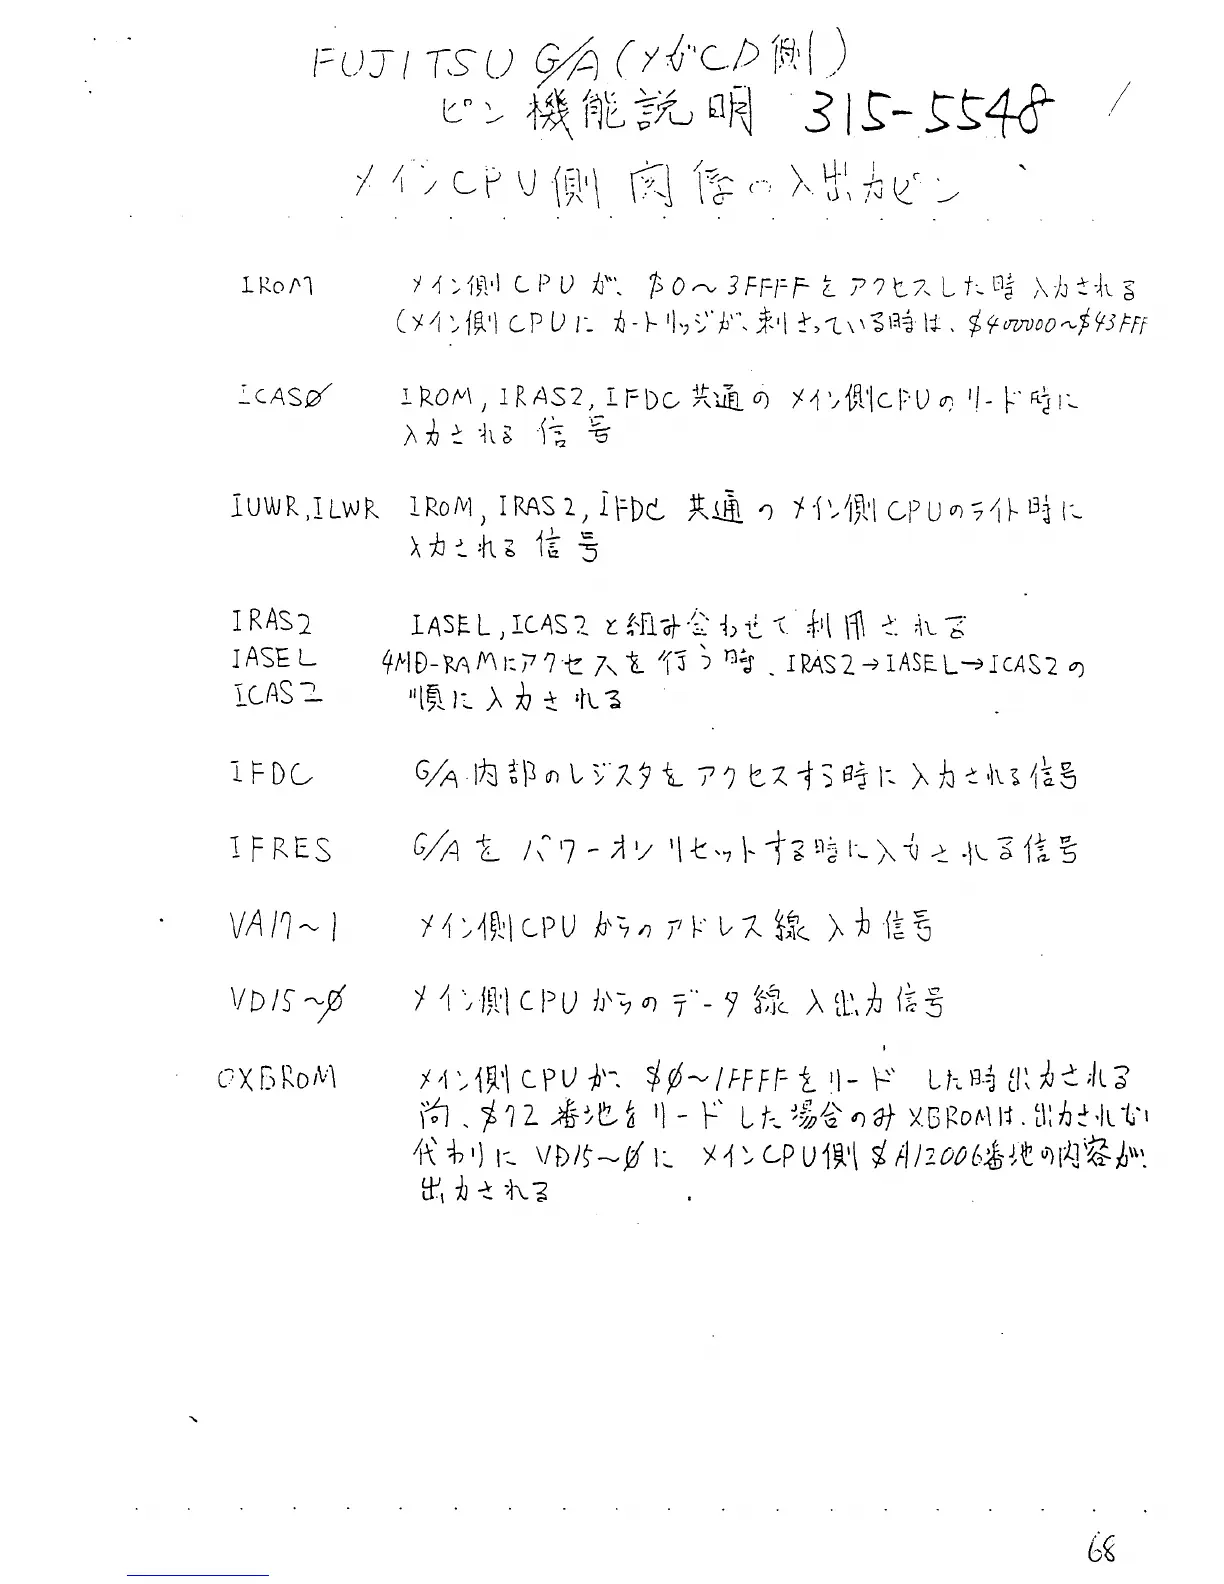 FUJITSU G/A (メガCD側)
ピン機能説明 315-5548
メインCPU側関係の入出力ピン
IROM メイン側CPUが、$0～3FFFFをアクセスした時入力される
(メイン側CPUにカートリッジが、刺さっている時は、$400000～$43FFF
ICASØ IROM, IRAS2, IFDC共通のメイン側CPUのリード時に
入力される信号
IUWR, ILWR IROM, IRAS2, IFDC 共通のメイン側CPUのライト時に
入力される信号
IRAS2 IASEL, ICAS2と組み合わせて利用される
IASEL 4MD-RAMにアクセスを行う時、IRAS2→IASEL→ICAS2の
ICAS2 順に入力される
IFDC G/A内部のレジスタをアクセスする時に入力される信号
IFRES G/Aをパワーオンリセットする時に入力される信号
VA17～1 メイン側CPUからのアドレス線入力信号
VD15～Ø メイン側CPUからのデータ線入出力信号
OXBROM メイン側CPUが、$Ø～1FFFFをリードした時出力される
尚、$72番地をリードした場合のみXBROMは、出力されない
代わりにVD15～ØにメインCPU側$A12006番地の内容が、
出力される
68